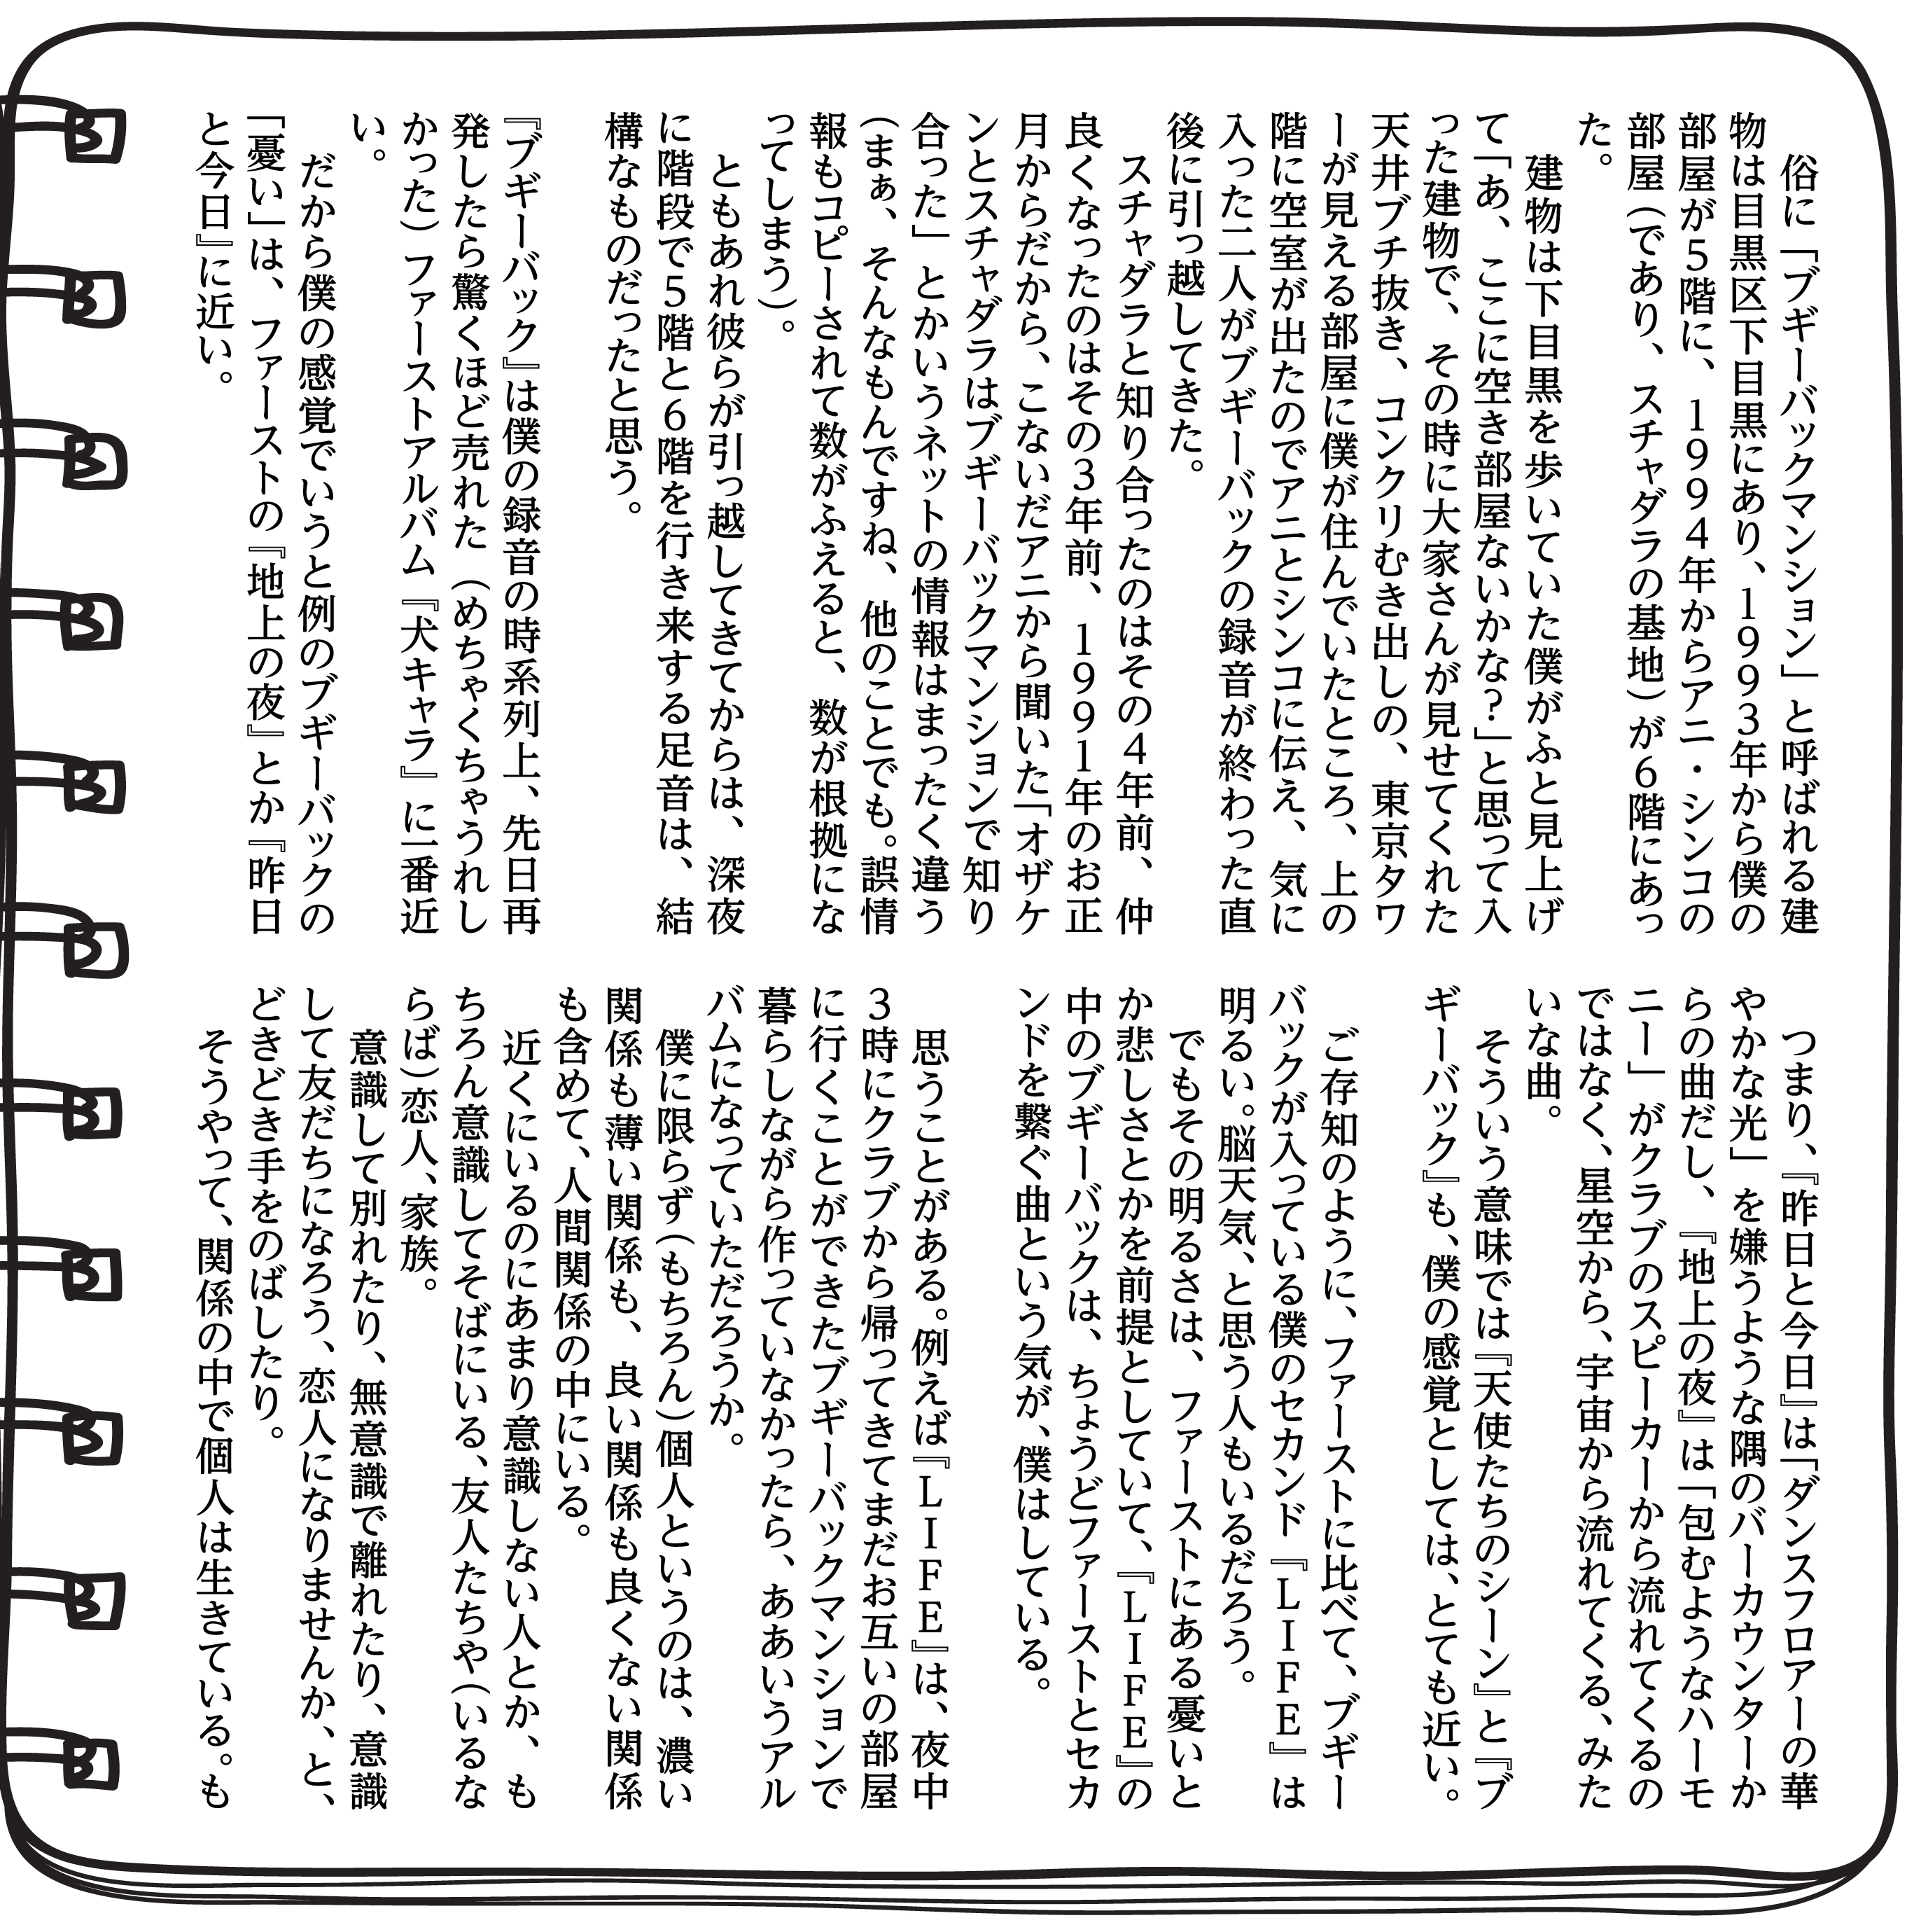 俗に「ブギーバックマンション」と呼ばれる建
物は目黒区下目黒にあり、1993年から僕の
部屋が5階に、1994年からアニ・シンコの
部屋（であり、スチャダラの基地）が6階にあっ
た。
建物は下目黒を歩いていた僕がふと見上げ
て「あ、ここに空き部屋ないかな？」と思って入
った建物で、その時に大家さんが見せてくれた
天井ブチ抜き、コンクリむき出しの、東京タワ
ーが見える部屋に僕が住んでいたところ、上の
階に空室が出たのでアニとシンコに伝え、気に
入った二人がブギーバックの録音が終わった直
後に引っ越してきた。
スチャダラと知り合ったのはその4年前、仲
良くなったのはその3年前、1991年のお正
月からだから、こないだアニから聞いた「オザケ
ンとスチャダラはブギーバックマンションで知り
合った」とかいうネットの情報はまったく違う
（まぁ、そんなもんですね、他のことでも。誤情
報もコピーされて数がふえると、数が根拠にな
ってしまう）。
ともあれ彼らが引っ越してきてからは、深夜
に階段で5階と6階を行き来する足音は、結
構なものだったと思う。
『ブギーバック』は僕の録音の時系列上、先日再
発したら驚くほど売れた（めちゃくちゃうれし
かった）ファーストアルバム『犬キャラ』に一番近
い。
だから僕の感覚でいうと例のブギーバックの
「憂い」は、ファーストの『地上の夜』とか『昨日
と今日』に近い。
つまり、『昨日と今日』は「ダンスフロアーの華
やかな光」を嫌うような隅のバーカウンターか
らの曲だし、『地上の夜』は「包むようなハーモ
ニー」がクラブのスピーカーから流れてくるの
ではなく、星空から、宇宙から流れてくる、みた
いな曲。
そういう意味では『天使たちのシーン』と『ブ
ギーバック』も、僕の感覚としては、とても近い。
ご存知のように、ファーストに比べて、ブギー
バックが入っている僕のセカンド『LIFE』は
明るい。脳天気、と思う人もいるだろう。
でもその明るさは、ファーストにある憂いと
か悲しさとかを前提としていて、『LIFE』の
中のブギーバックは、ちょうどファーストとセカ
ンドを繋ぐ曲という気が、僕はしている。
思うことがある。例えば『LIFE』は、夜中
3時にクラブから帰ってきてまだお互いの部屋
に行くことができたブギーバックマンションで
暮らしながら作っていなかったら、ああいうアル
バムになっていただろうか。
僕に限らず（もちろん）個人というのは、濃い
関係も薄い関係も、良い関係も良くない関係
も含めて、人間関係の中にいる。
近くにいるのにあまり意識しない人とか、も
ちろん意識してそばにいる、友人たちや（いるな
らば）恋人、家族。
意識して別れたり、無意識で離れたり、意識
して友だちになろう、恋人になりませんか、と、
どきどき手をのばしたり。
そうやって、関係の中で個人は生きている。も